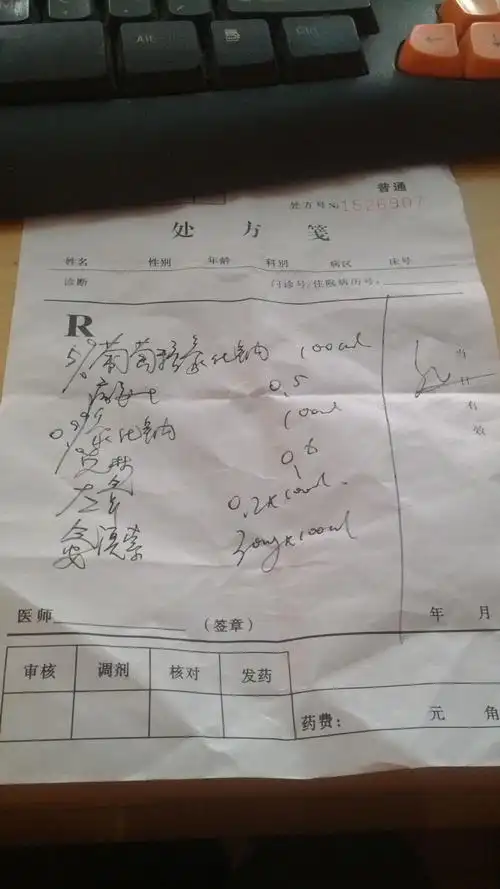 Alt
Ctrl
普通
处方号№1526907
处方笺
姓名 性别 年龄 科别 病区 床号
诊断 门诊号/住院病历号:
R
5% 葡萄糖氯化钠 100ml
0.5
0.9% 氯化钠 100ml
克林 0.6
左氧 0.2×100ml
氨溴索 30mg×100ml
当日有效
医师 (签章) 年 月
审核 调剂 核对 发药
药费: 元 角